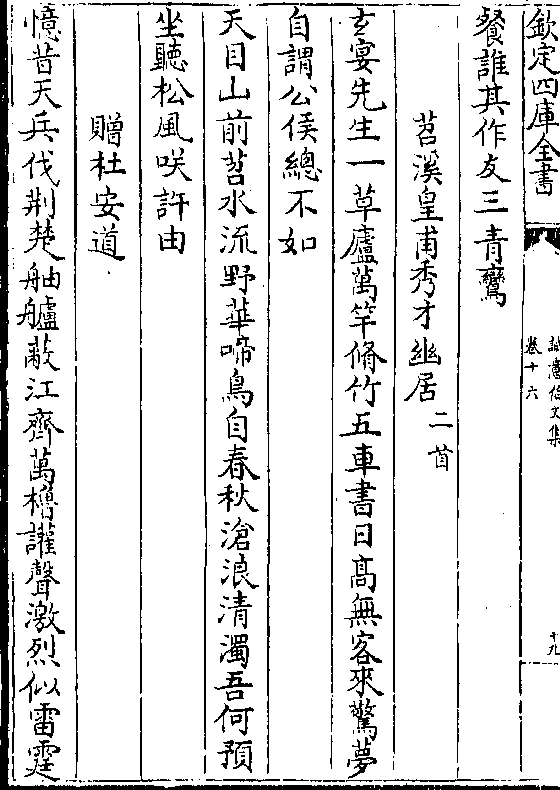 欽定四庫全書
誠意伯文集
卷十六
十九
餐誰其作友三青鸞
苕溪皇甫秀才幽居二首
玄宴先生一草廬萬竿脩竹五車書日髙無客來驚夢
自謂公侯總不如
天目山前苕水流野華啼鳥自春秋滄浪清濁吾何預
坐聽松風咲許由
贈杜安道
憶昔天兵伐荆楚舳艫蔽江齊萬櫓讙聲激烈似雷霆